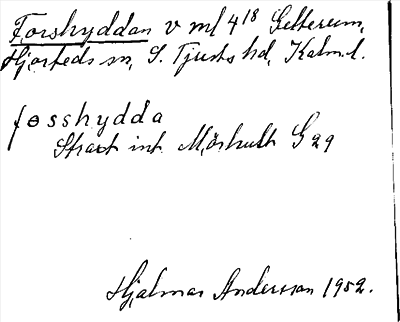 Forshyddan v ml 4¹⁸ Getterum,
Hjorteds sn, S. Tjusts hd, Kalm.l.
fosshydda
Strax int. Mörhult G 29
Hjalmar Andersson 1952.